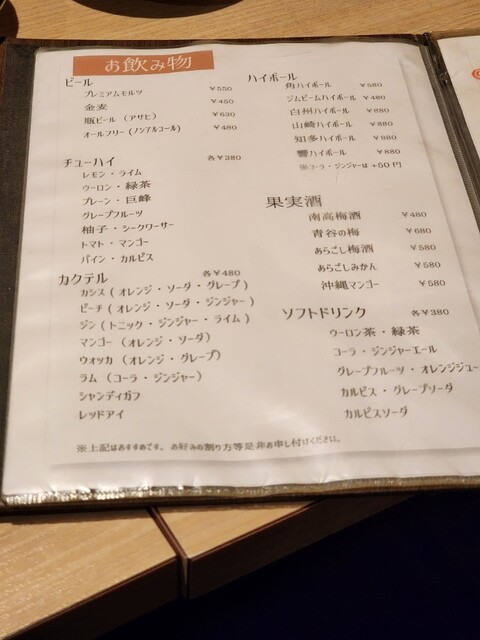 お飲み物
ビール
プレミアムモルツ ¥550
金麦 ¥450
瓶ビール (アサヒ) ¥630
オールフリー (ノンアルコール) ¥480
チューハイ 各¥380
レモン・ライム
ウーロン・緑茶
プレーン・巨峰
グレープフルーツ
柚子・シークワーサー
トマト・マンゴー
パイン・カルピス
カクテル 各¥480
カシス ( オレンジ・ソーダ・グレープ )
ピーチ ( オレンジ・ソーダ・ジンジャー )
ジン ( トニック・ジンジャー・ライム )
マンゴー (オレンジ・ソーダ)
ウォッカ (オレンジ・グレープ)
ラム (コーラ・ジンジャー)
シャンディガフ
レッドアイ
ハイボール
角ハイボール ¥580
ジムビームハイボール ¥480
白州ハイボール ¥880
山崎ハイボール ¥880
知多ハイボール ¥880
響ハイボール ¥880
※コーラ・ジンジャーは +50円
果実酒
南高梅酒 ¥480
青谷の梅 ¥680
あらごし梅酒 ¥580
あらごしみかん ¥580
沖縄マンゴー ¥580
ソフトドリンク 各¥380
ウーロン茶・緑茶
コーラ・ジンジャーエール
グレープフルーツ・オレンジジュー
カルピス・グレープソーダ
カルピスソーダ
※上記はおすすめです。お好みの割り方等是非お申し付けください。